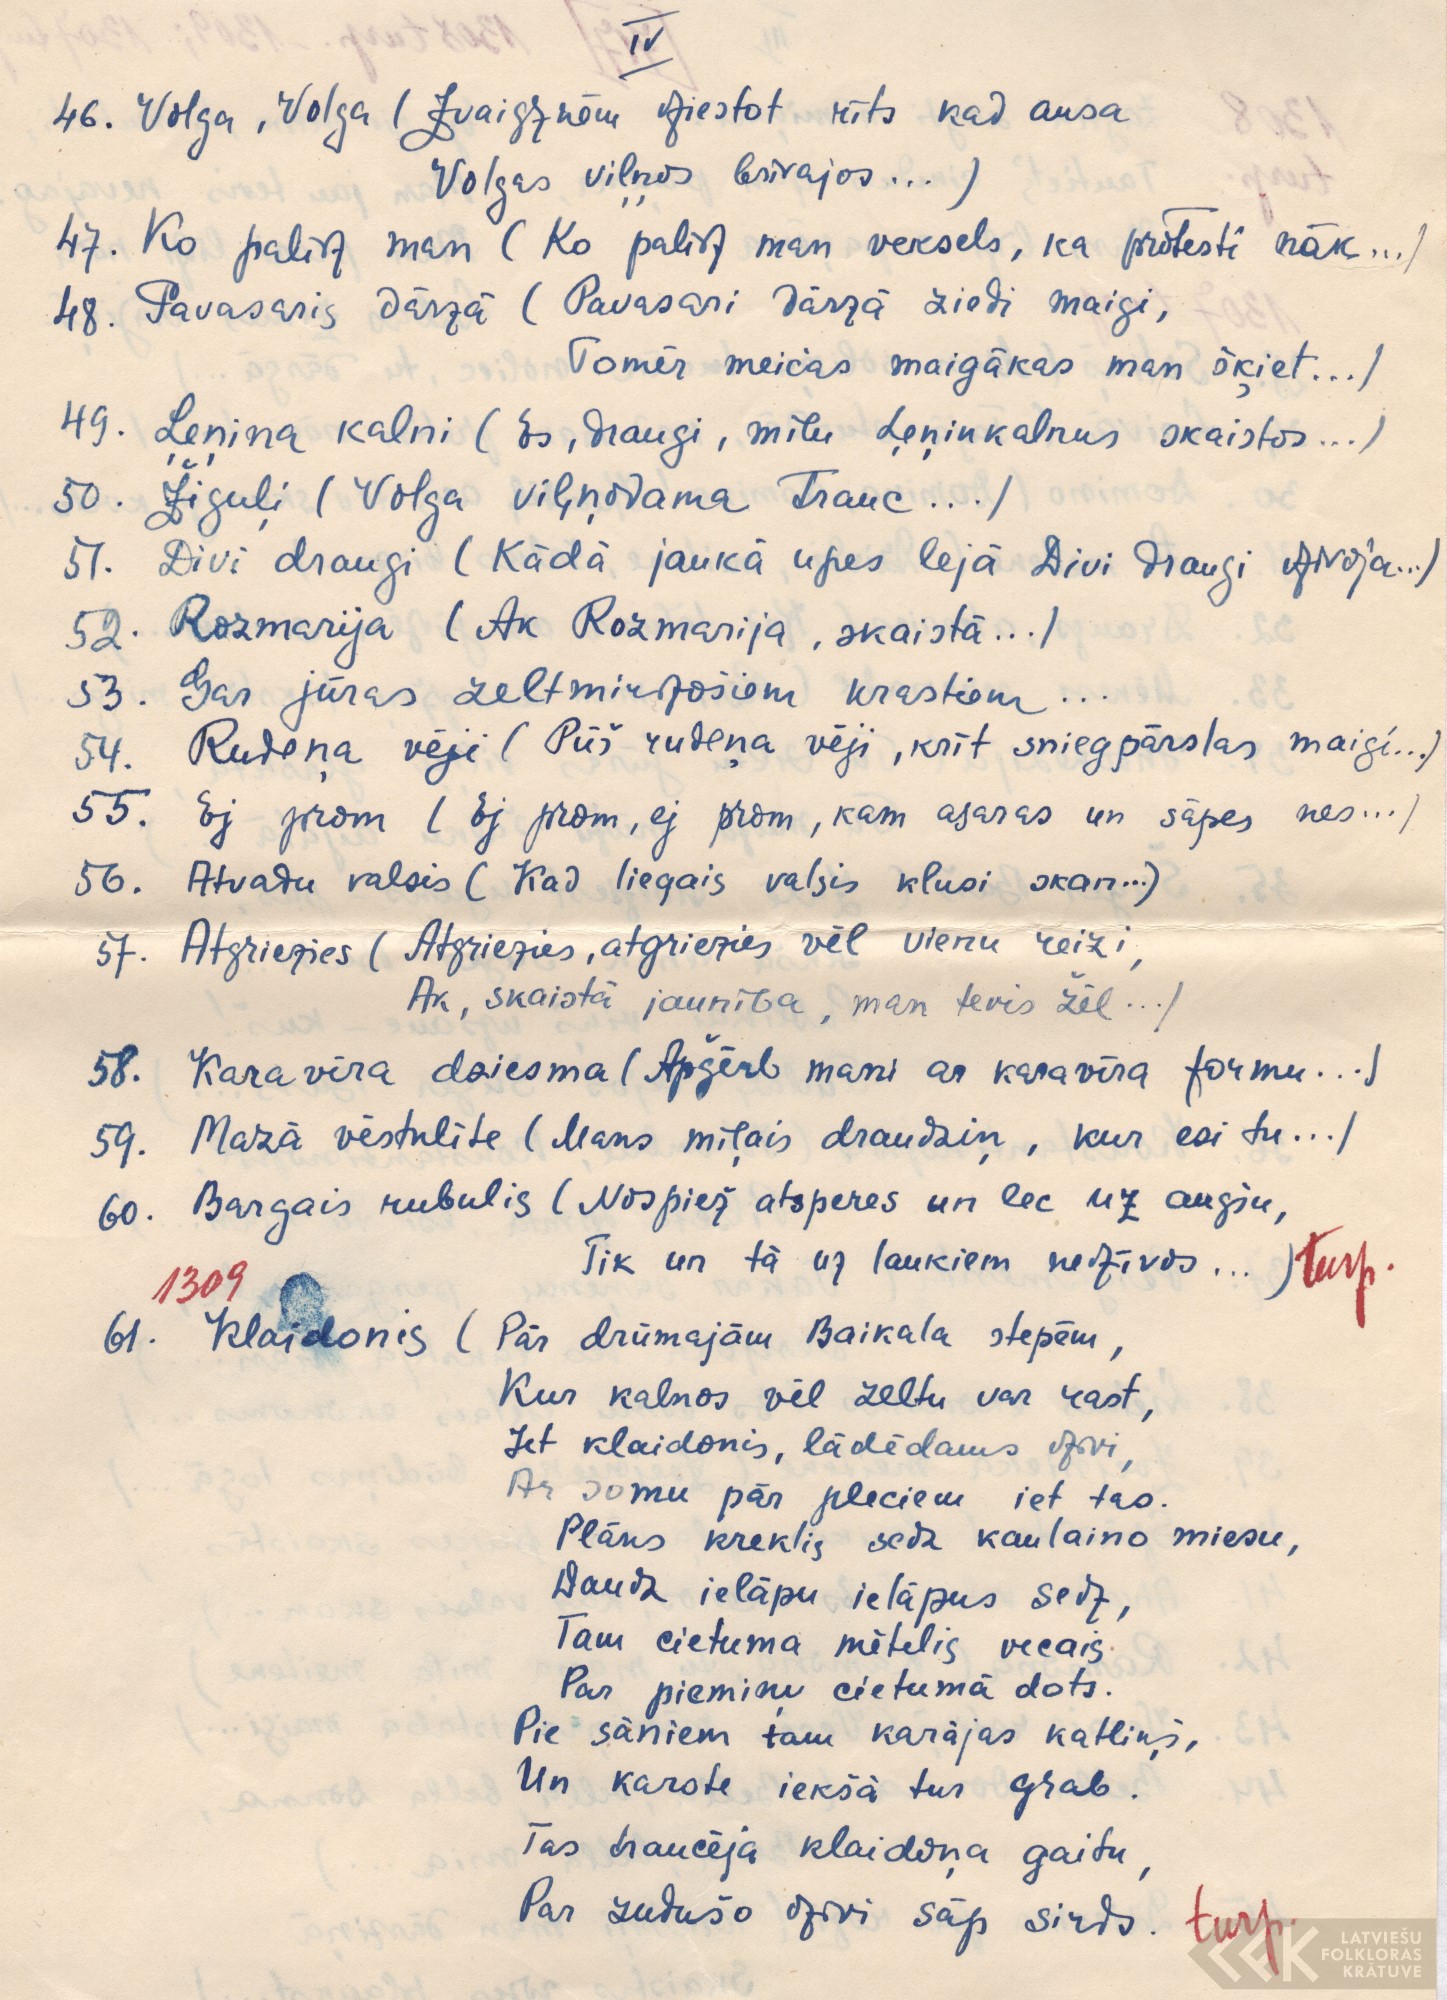 IV
46. Volga, Volga (Zvaigznēm dziestot rīts kad ausa
Volgas viļņos brīvajos...)
47. Ko palīdz man (Ko palīdz man veksels, ka protestī nāk...)
48. Pavasaris dārzā (Pavasarī dārzā ziedi maigi,
Tomēr meičas maigākas man šķiet...)
49. Ļeņina kalni (Es, draugi, mīlu Ļeņinkalnus skaistos...)
50. Žiguļi (Volga viļņodama trauc....)
51. Divi draugi (Kādā jaukā upes lejā Divi draugi dzīvoja...)
52. Rozmarija (Ak Rozmarija, skaistā...)
53. Gar jūras zeltmirdzošiem krastiem...
54. Rudeņa vēji (Pūš rudeņa vēji, krīt sniegpārslas maigi...)
55. Ej prom (Ej prom, ej prom, kam asaras un sāpes nes...)
56. Atvadu valsis (Kad liegais valsis klusi skan...)
57. Atgriezies (Atgriezies, atgriezies vēl vienu reizi,
Ak, skaistā jaunība, man tevis žēl...)
58. Karavīra dziesma (Apģērb mani ar karavīra formu...)
59. Mazā vēstulīte (Mans mīļais draudziņ, kur esi tu...)
60. Bargais rubulis (Nospiež atsperes un lec uz augšu,
Tik un tā uz laukiem nedzīvos...) turp.
1309
61. Klaidonis (Pār drūmajām Baikala stepēm,
Kur kalnos vēl zeltu var rast,
Iet klaidonis, lādēdams dzīvi,
Ar somu pār pleciem iet tas.
Plāns krekliņš sedz kaulaino miesu,
Daudz ielāpu ielāpus sedz,
Tam cietuma mētelis vecais
Par piemiņu cietumā dots.
Pie sāniem tam karājas katliņš,
Un karote iekšā tur grab.
Tas traucēja klaidoņa gaitu,
Par zudušo dzīvi sāp sirds. turp.
LATVIEŠU
FOLKLORAS
KRĀTUVE